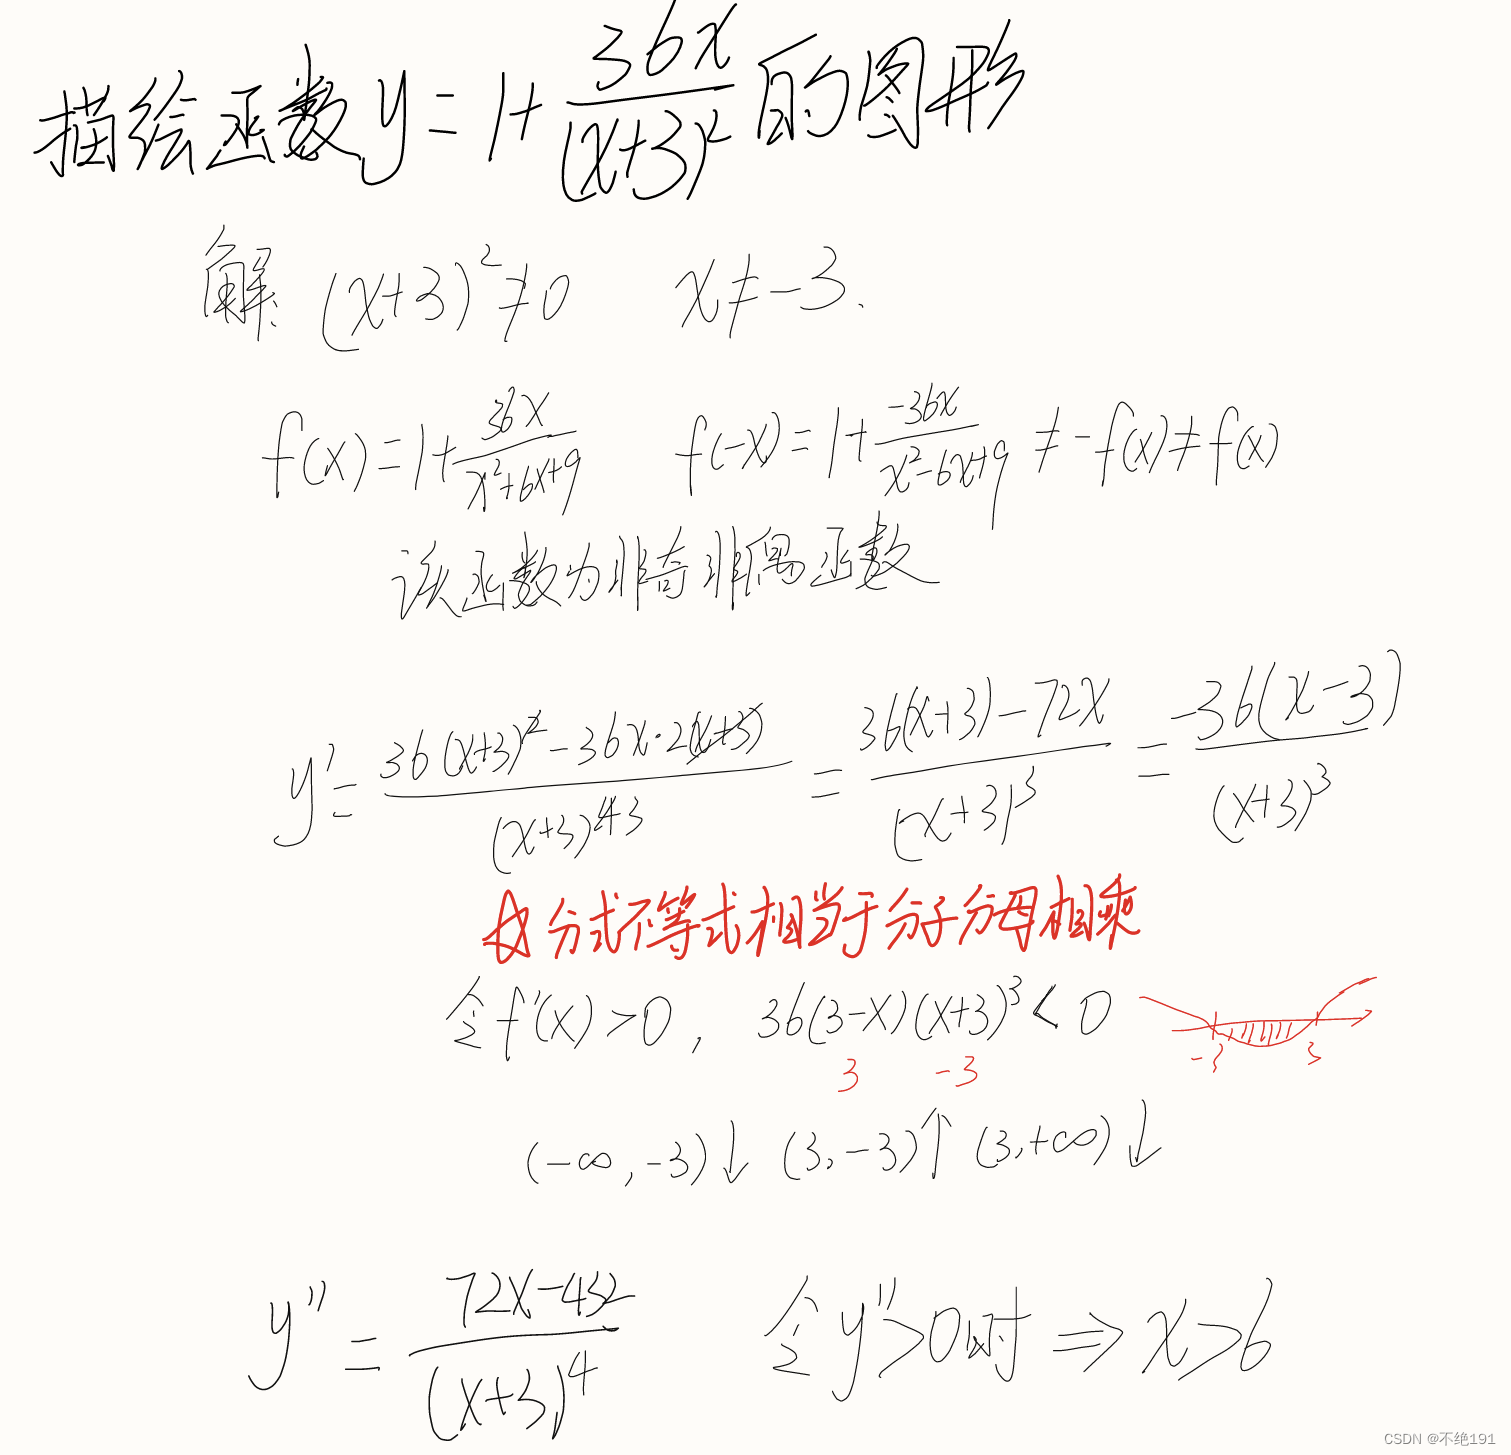 描绘函数y=1+36x/(x+3)²的图形
解: (x+3)²≠0 x≠-3.
f(x)=1+36x/(x²+6x+9) f(-x)=1+-36x/(x²-6x+9)≠-f(x)≠f(x)
该函数为非奇非偶函数
y'=(36(x+3)²-36x·2(x+3))/(x+3)⁴³=(36(x+3)-72x)/(x+3)³=-36(x-3)/(x+3)³
☆分式不等式相当于分子分母相乘
令f'(x)>0, 36(3-x)(x+3)³<0
3 -3 -3 3
(-∞,-3)↓ (3,-3)↑ (3,+∞)↓
y''=(72x-432)/(x+3)⁴ 令y''>0时⇒x>6
CSDN @不绝191